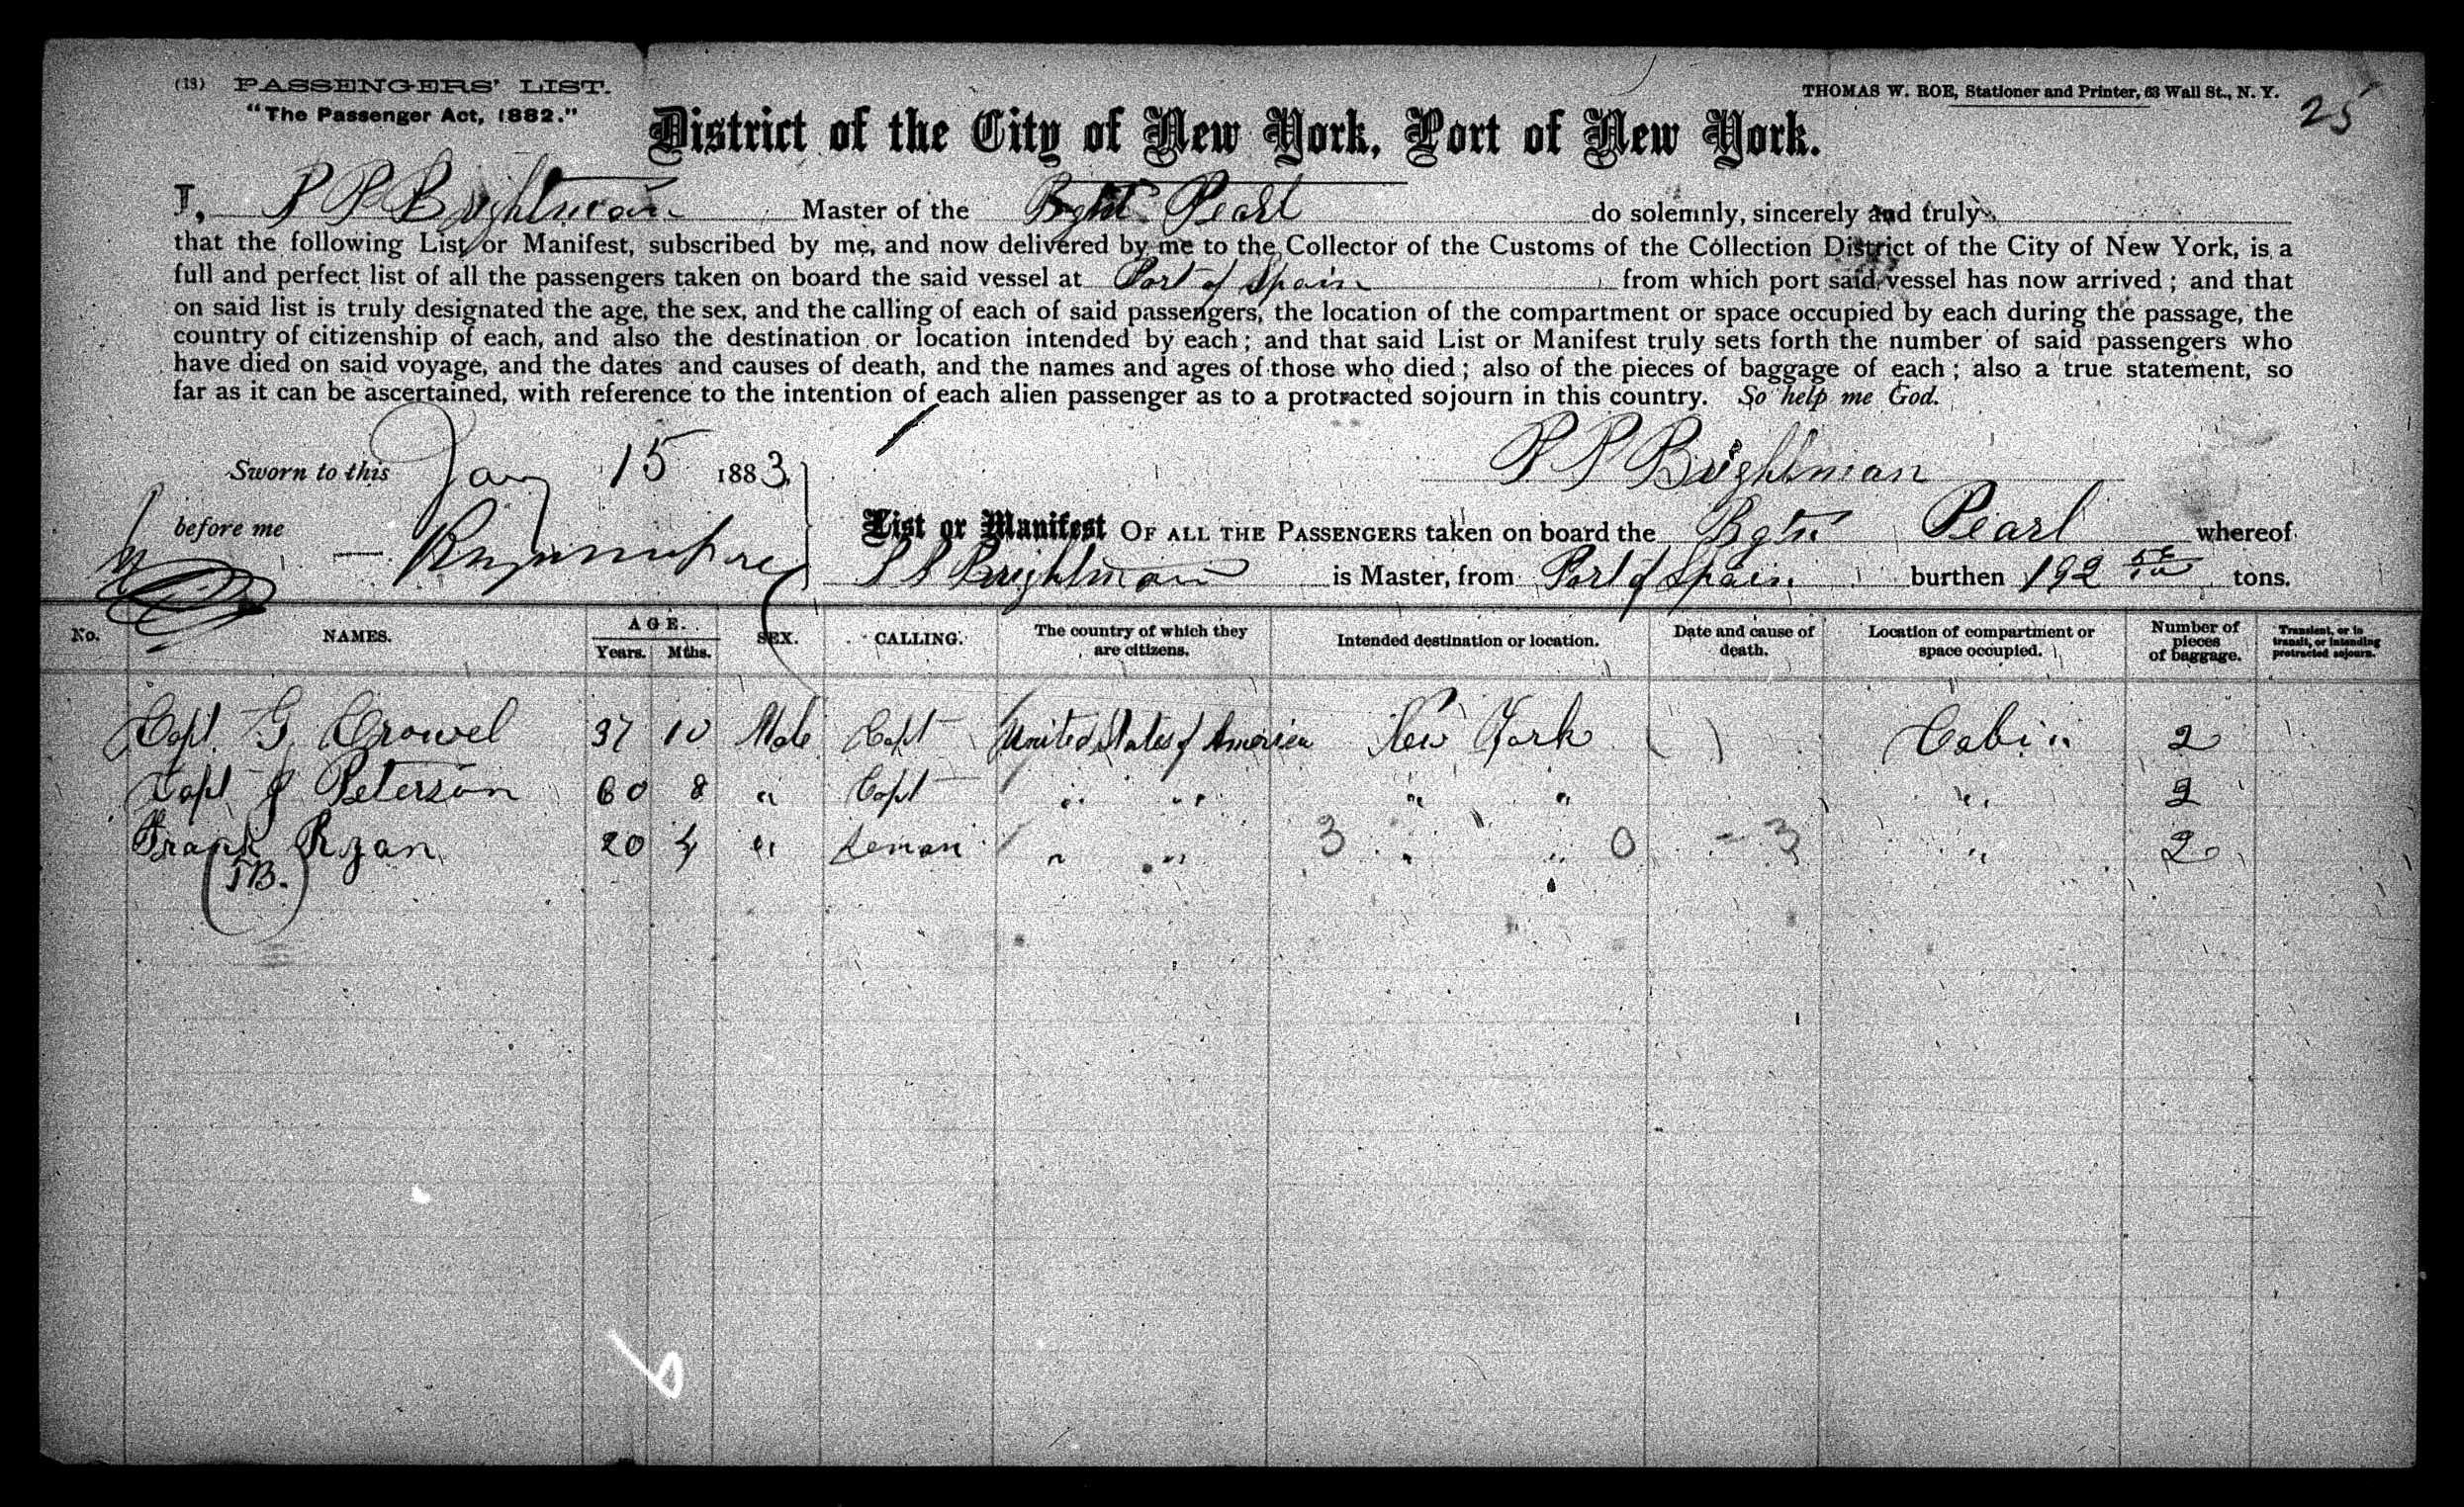 (13) PASSENGERS' LIST.
THOMAS W. ROE, Stationer and Printer, 63 Wall St., N. Y.
25
"The Passenger Act, 1882."
District of the City of New York, Port of New York.
I, P P Brightman Master of the Pearl do solemnly, sincerely and truly
that the following List or Manifest, subscribed by me, and now delivered by me to the Collector of the Customs of the Collection District of the City of New York, is a
full and perfect list of all the passengers taken on board the said vessel at Port of Spain from which port said vessel has now arrived; and that
on said list is truly designated the age, the sex, and the calling of each of said passengers, the location of the compartment or space occupied by each during the passage, the
country of citizenship of each, and also the destination or location intended by each; and that said List or Manifest truly sets forth the number of said passengers who
have died on said voyage, and the dates and causes of death, and the names and ages of those who died; also of the pieces of baggage of each; also a true statement, so
far as it can be ascertained, with reference to the intention of each alien passenger as to a protracted sojourn in this country. So help me God.
Sworn to this Jany 15 1883,
P P Brightman
before me
List or Manifest OF ALL THE PASSENGERS taken on board the Bgtn Pearl whereof
P P Brightman is Master, from Port of Spain burthen 192 tons.
No. NAMES. AGE. Years. Mths. SEX. CALLING. The country of which they are citizens. Intended destination or location. Date and cause of death. Location of compartment or space occupied. Number of pieces of baggage. Transient, or in transit, or intending protracted sojourn.
Capt. G. Crowel 37 10 Male Capt United States of America New York Cabin 2
Capt J Peterson 60 8 " Capt " " " " " 2
Frank Ryan 20 " Seman " " 3 " " 0 - 3 " 2